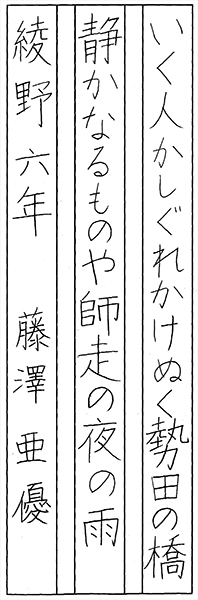 いく人かしぐれかけぬく勢田の橋
静かなるものや師走の夜の雨
綾野六年 藤澤亜優